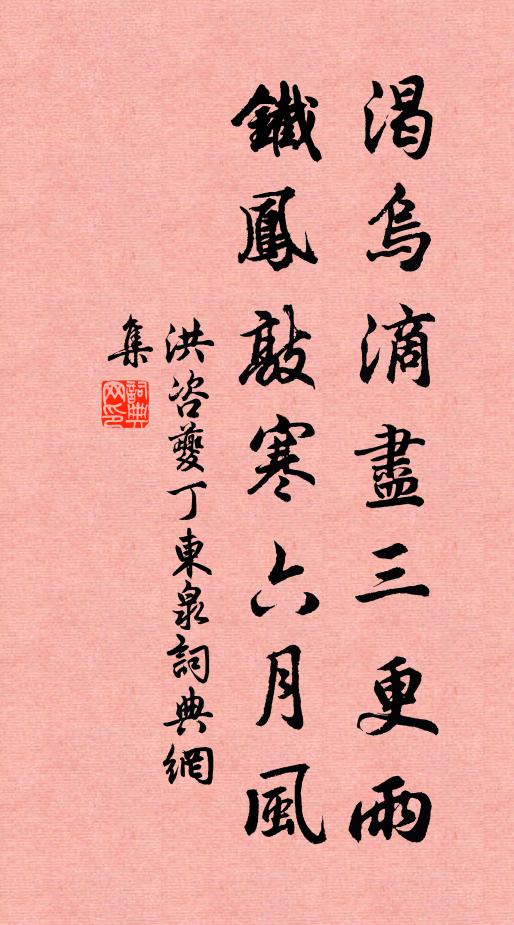 渴烏滴盡三更雨
鐵鳳敲寒六月風
洪咨夔丁東泉詞典網
集
詞典
网印